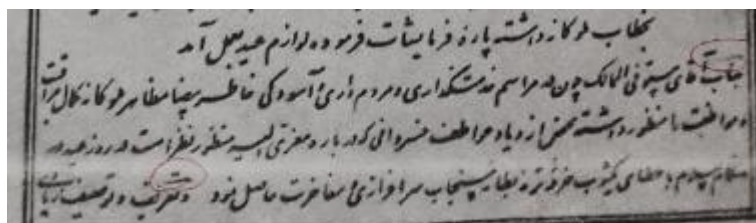 بخطاب ملوکانه داشته پاره فرمایشات فرموده لوازم عید بعمل آمد
جناب آقای مستوفی الممالک چون در مراسم خدمتگذاری و مردم داری و آسودگی خاطر مظاهر ملوکانه کمال مراقبت
و مواظبت را منظور داشته محض ازدیاد عواطف خسروانی که درباره معزی الیه منظور نظر است در روز عید در
سلام باعطای یکثوب خرقه ترمه بطانه سنجاب سرافرازی و مفاخرت حاصل نمود و تعریف و توصیف